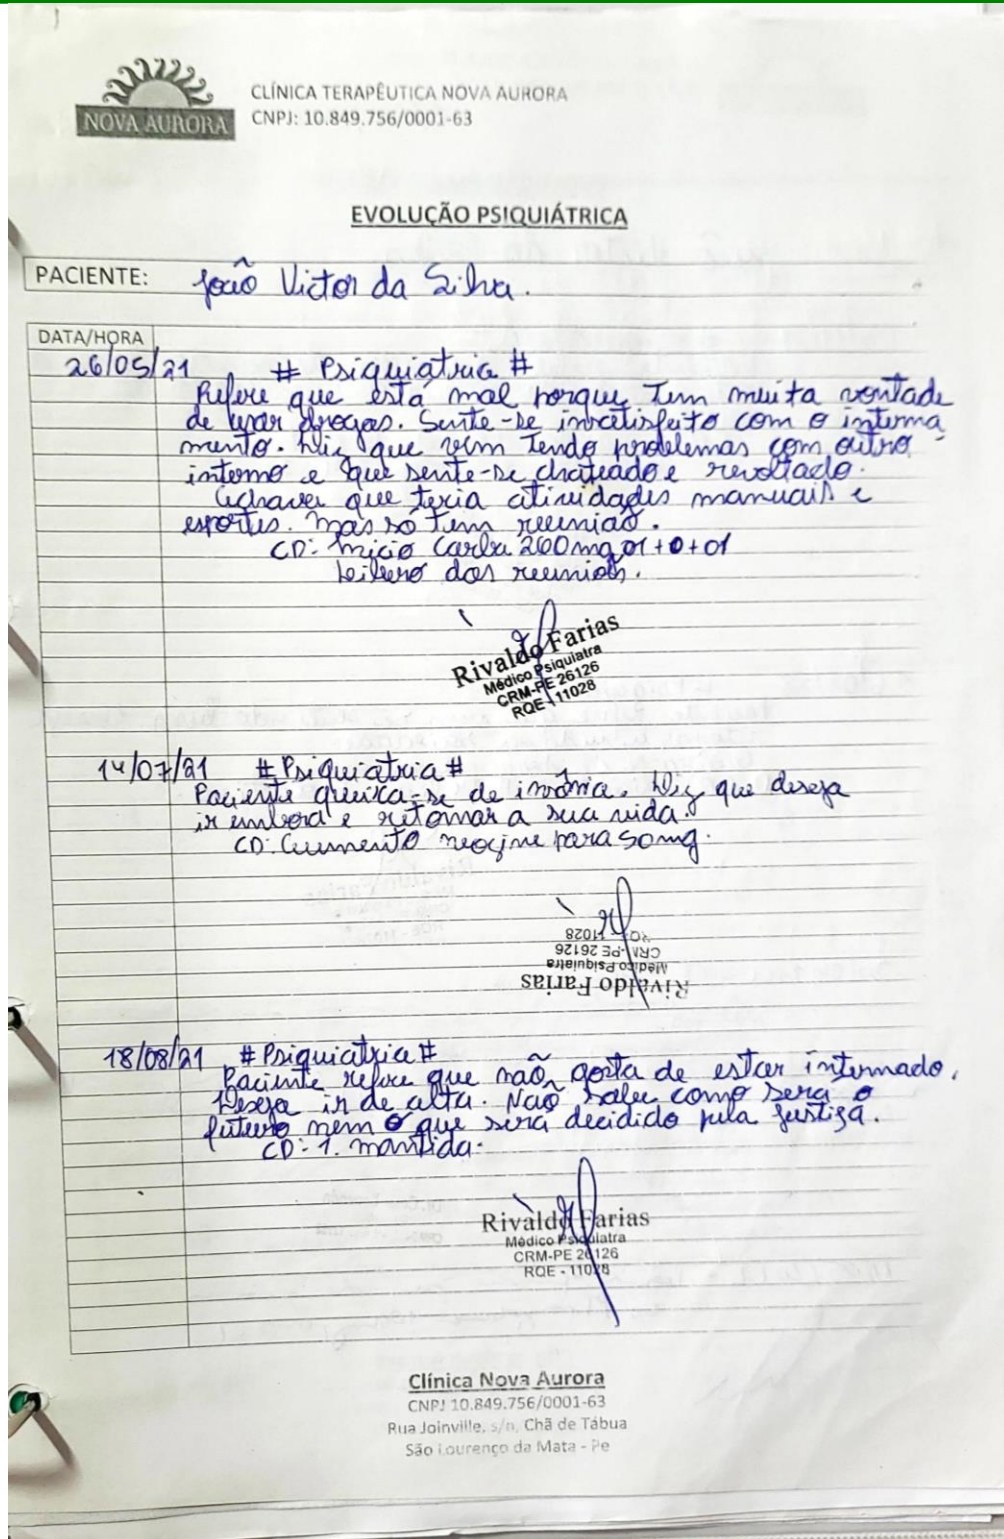 NOVA AURORA
CLÍNICA TERAPÊUTICA NOVA AURORA
CNPJ: 10.849.756/0001-63
EVOLUÇÃO PSIQUIÁTRICA
PACIENTE: João Victor da Silva.
DATA/HORA
26/05/21 # Psiquiatria #
Refere que está mal porque tem muita vontade
de usar drogas. Sente-se insatisfeito com o interna
mento. Diz que vem tendo problemas com outro
interno e que sente-se chateado e revoltado.
Achava que teria atividades manuais e
esportes. Mas so tem reunião.
CD: Inicio Carba 200mg 01+0+01
Libero das reuniões.
Rivaldo Farias
Médico Psiquiatra
CRM-PE 26126
RQE 11028
14/07/21 # Psiquiatria #
Paciente queixa-se de insônia. Diz que deseja
ir embora e retomar a sua vida.
CD: Aumento neozine para 50mg.
Rivaldo Farias
Médico Psiquiatra
CRM-PE 26126
RQE - 11028
18/08/21 # Psiquiatria #
Paciente refere que não gosta de estar internado.
Deseja ir de alta. Não sabe como será o
futuro nem o que será decidido pela justiça.
CD: 1. mantida.
Rivaldo Farias
Médico Psiquiatra
CRM-PE 26126
RQE - 11028
Clínica Nova Aurora
CNPJ 10.849.756/0001-63
Rua Joinville, s/n, Chã de Tábua
São Lourenço da Mata - Pe